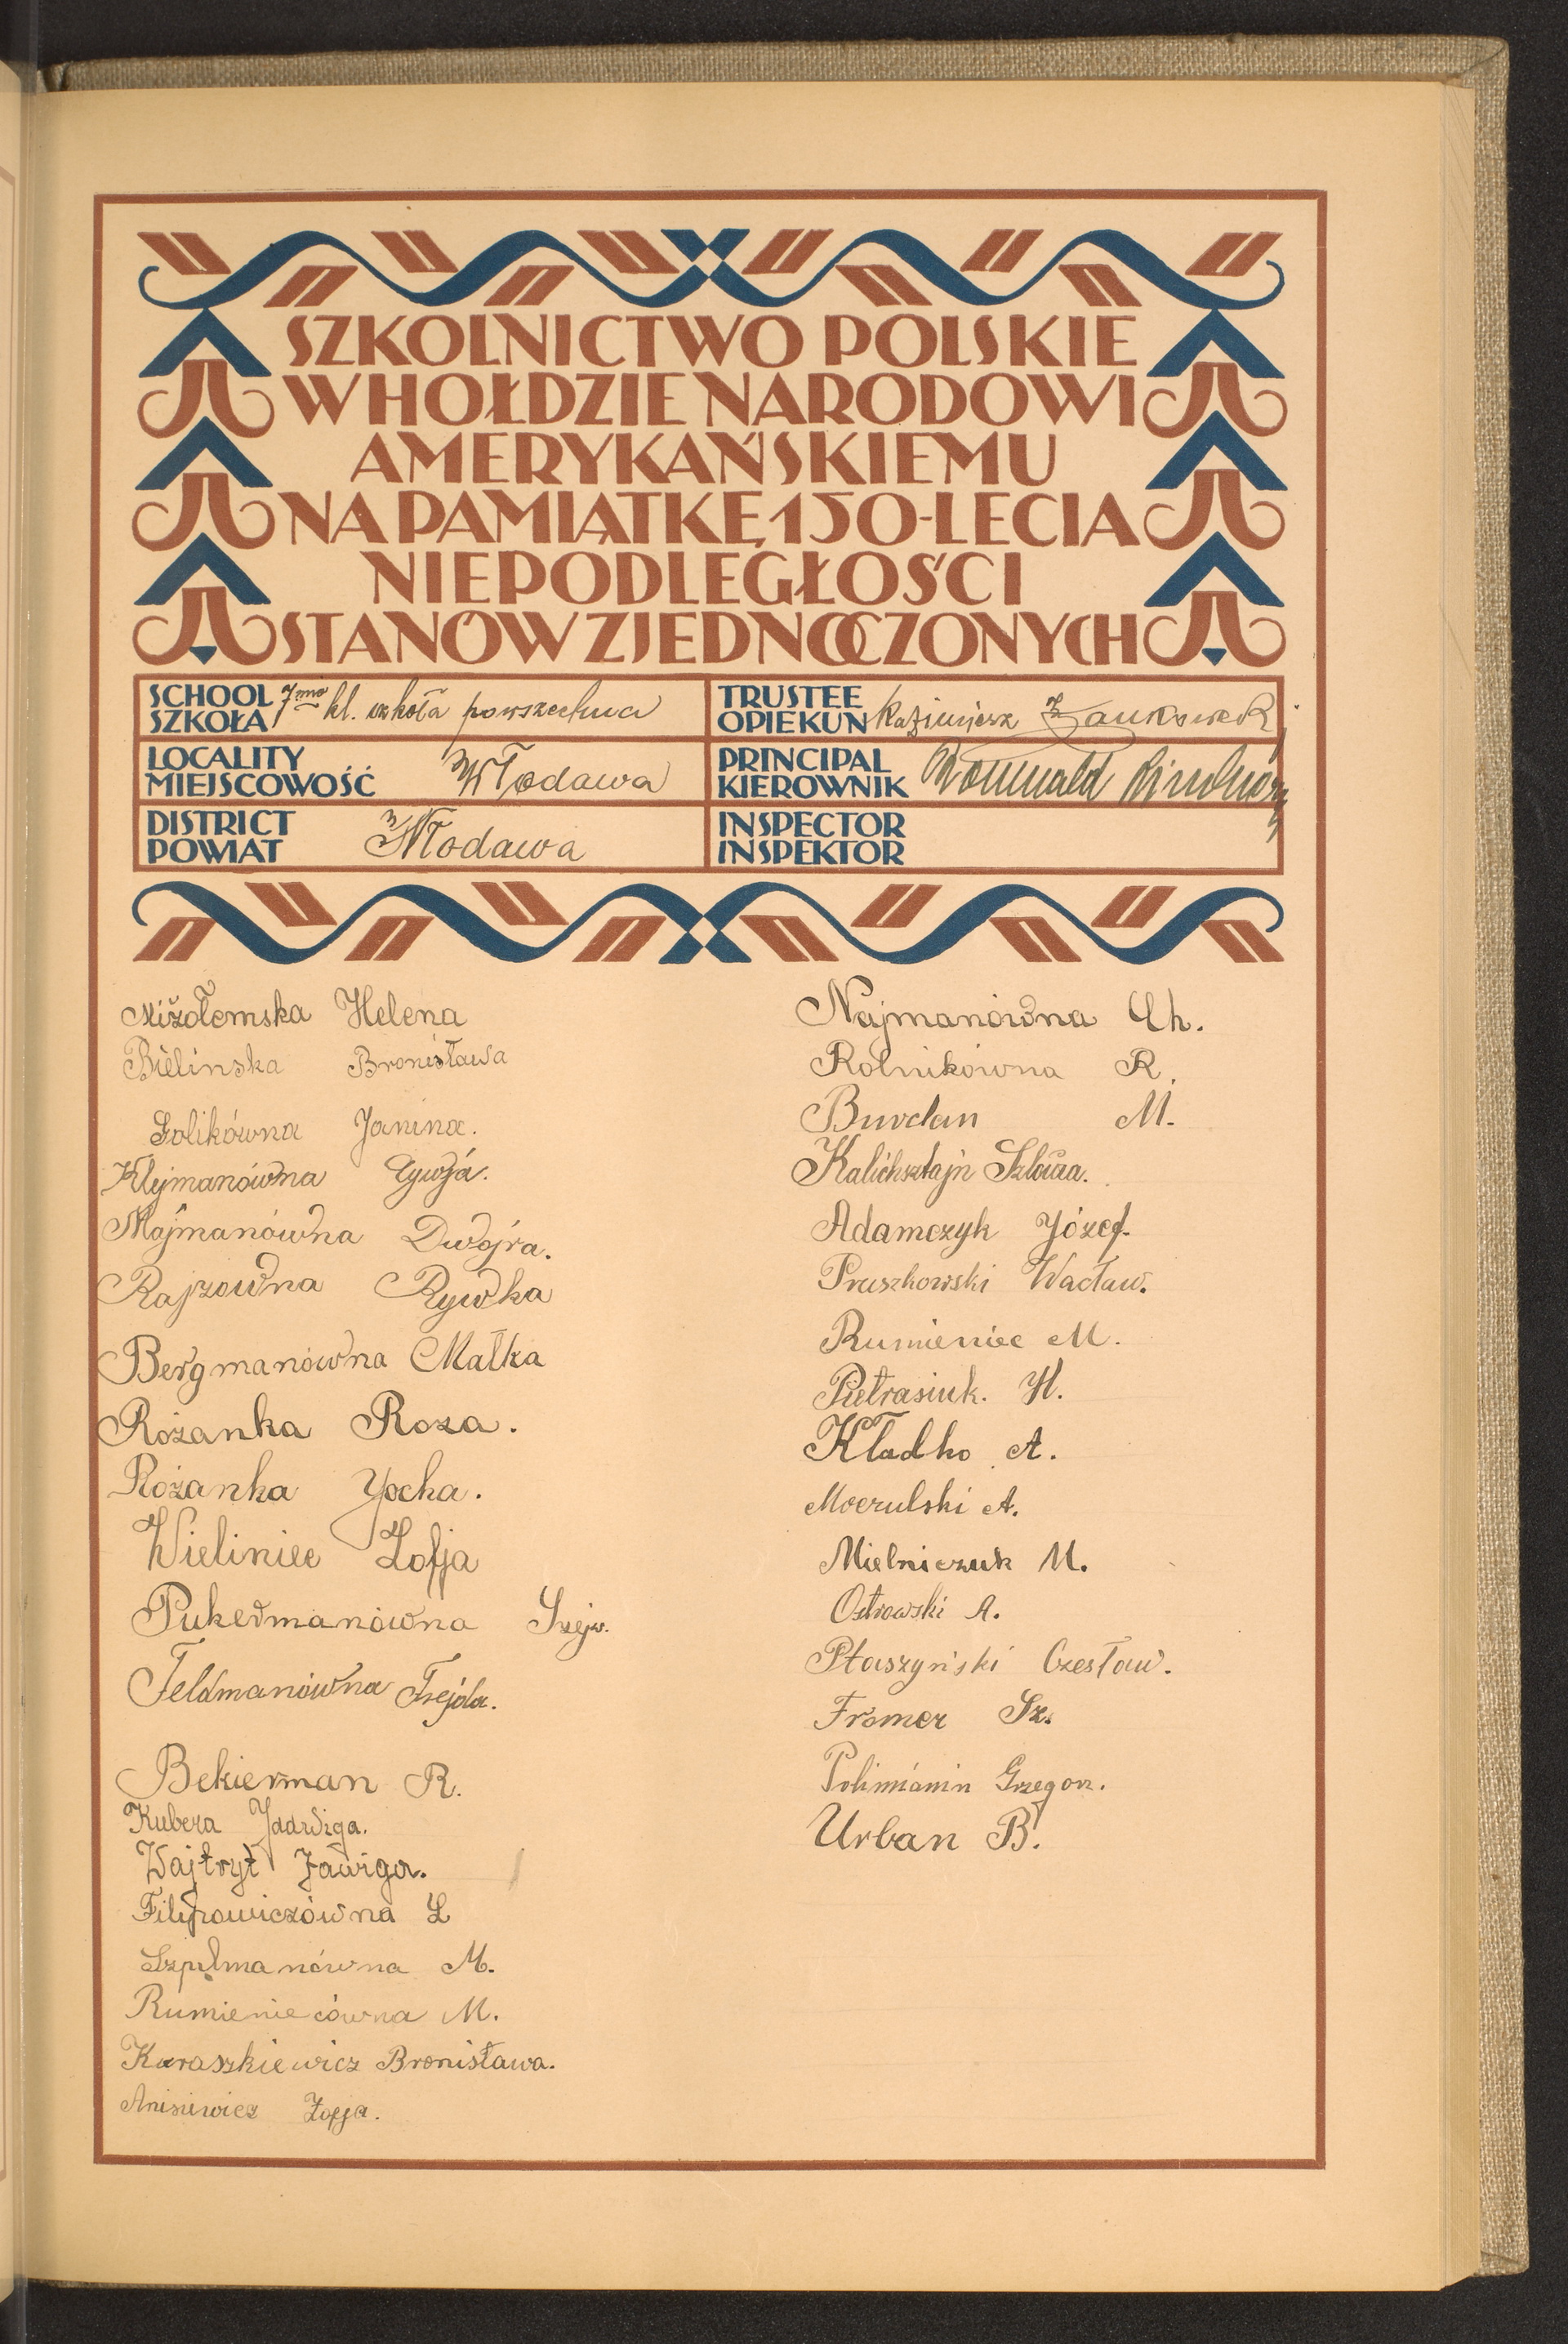 SZKOLNICTWO POLSKIE
W HOŁDZIE NARODOWI
AMERYKAŃSKIEMU
NA PAMIĄTKĘ 150-LECIA
NIEPODLEGŁOŚCI
STANÓW ZJEDNOCZONYCH
SCHOOL
SZKOŁA
7mio kl. szkoła powszechna
TRUSTEE
OPIEKUN
Kazimierz
LOCALITY
MIEJSCOWOŚĆ
Włodawa
PRINCIPAL
KIEROWNIK
Romuald
DISTRICT
POWIAT
Włodawa
INSPECTOR
INSPEKTOR
Helena
Bielinska Bronisława
Golikówna Janina.
Klejmanówna
Najmanówna Dwojra.
Rajzowna Rywka
Bergmanówna Małka
Rożanka Roza.
Rożanka Yocha.
Wieliniec Zofja
Pukermanówna Szejw.
Feldmanówna Frejda.
Bekierman R.
Kubera Jadwiga.
Wajtryt Jawiga.
Filipowiczówna L
Szpilmanówna M.
Rumieniecówna M.
Karaszkiewicz Bronisława.
Anisiewicz Zofja.
Najmanówna Ch.
Rolnikówna R.
Burdan M.
Kalichsztajn Szloma.
Adamczyk Józef.
Pruszkowski Wacław.
Rumieniec M.
Pietrasiuk. H.
Kładko A.
Moczulski A.
Mielniczuk M.
Ostrowski A.
Ptaszyński Czesław.
Fromer Sz.
Polimianin Grzegorz.
Urban B.